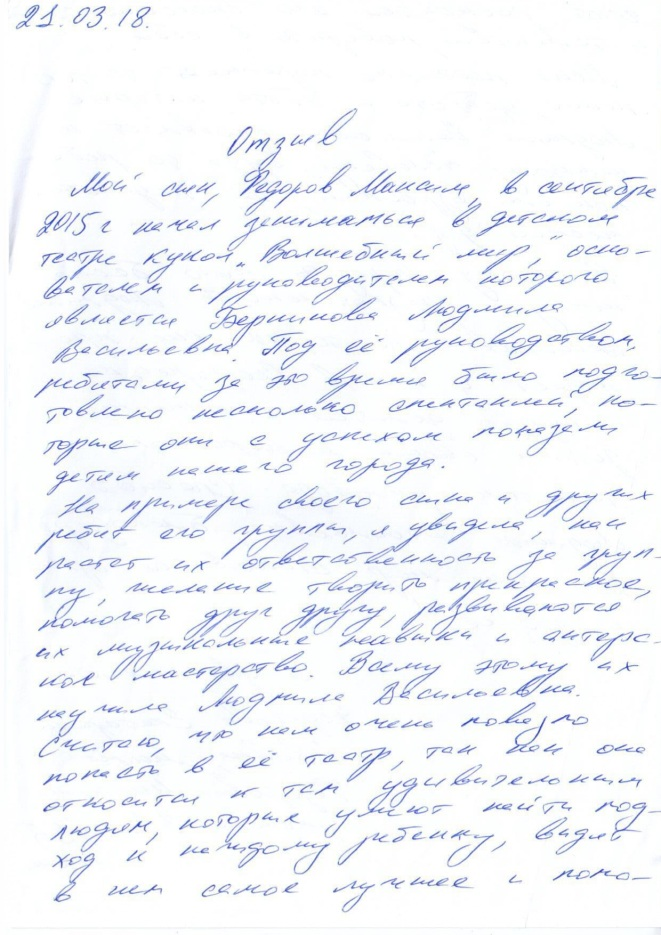 21.03.18.
Отзыв
Мой сын, Федоров Максим, в сентябре
2015 г начал заниматься в детском
театре кукол „Волшебный мир", осно-
вателем и руководителем которого
является Берникова Людмила
Васильевна. Под её руководством,
ребятами за это время было подго-
товлено несколько спектаклей, ко-
торые они с успехом показали
детям нашего города.
На примере своего сына и других
ребят его группы, я увидела, как
растет их ответственность за груп-
пу, желание творить прекрасное,
помогать друг другу, развиваются
их музыкальные навыки и актерс-
кое мастерство. Всему этому их
научила Людмила Васильевна.
Считаю, что нам очень повезло
попасть в её театр, так как она
относится к тем удивительным
людям, которые умеют найти под-
ход к каждому ребенку, видит
в нем самое лучшее и помо-